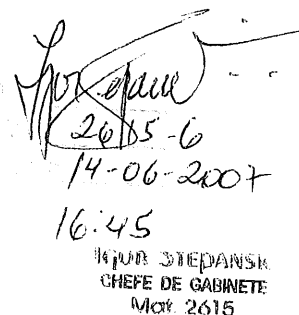 2615-6
14-06-2007
16:45
IGUR STEPANSK
CHEFE DE GABINETE
Mat. 2615